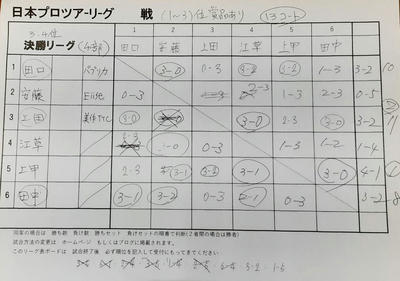 日本プロツアーリーグ 戦 (1~3)位賞品あり 13コート
3.4位
決勝リーグ (4部) 1 2 3 4 5 6
田口 安藤 上田 江草 上甲 田中
1 田口 3-0 0-3 3-2 1-3 3-2 10
2 安藤 0-3 2-3 1-3 2-3 0-5
3 上田 3-0 3-0 2-3 3-0 3-2 11
4 江草 3-0 0-3 1-3 1-2 1-4
5 上甲 2-3 3-1 3-2 3-1 3-0 4-1
6 田中 3-1 3-2 0-3 2-1 0-3 3-2 8
同率の場合は 勝ち数 負け数 勝ちセット 負けセットの順番で判断(2者間の場合は勝者)
試合方法の変更は ホームページ もしくはブログに掲載されます。
このリーグ表ボードは 試合終了後 必ず順位を記入して受付にもってきてください
3-2 1-5